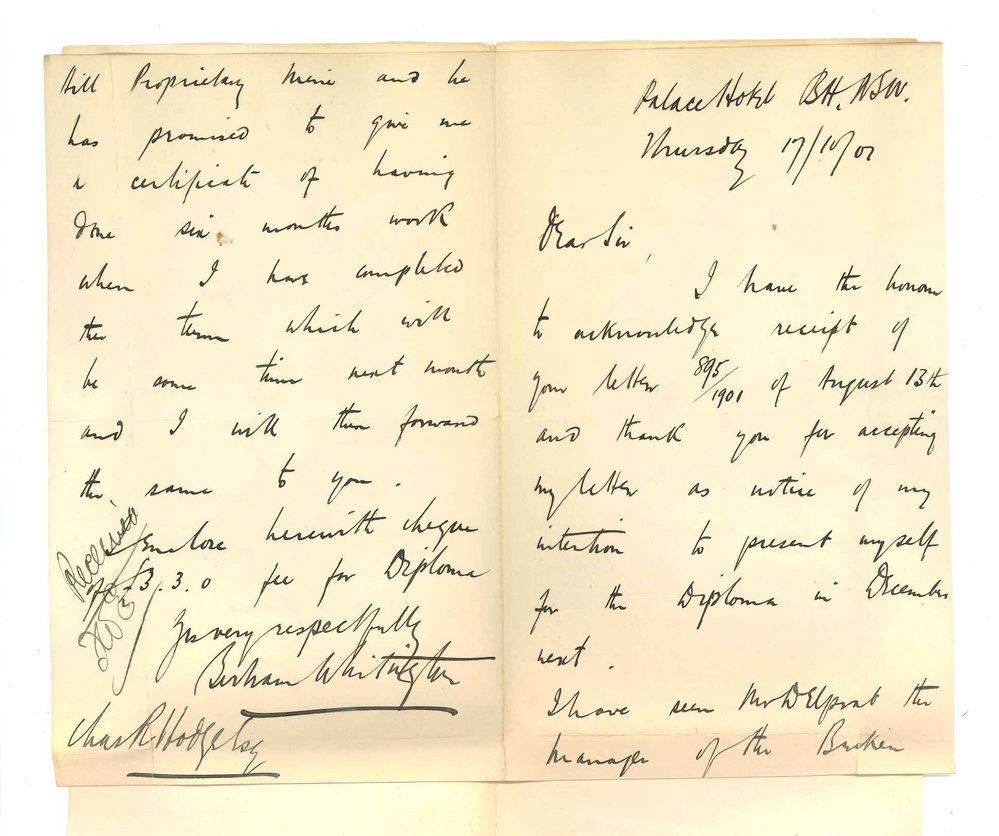 Palace Hotel BH. NSW.
Thursday 17/10/01
Dear Sir,
I have the honour
to acknowledge receipt of
your letter 895/1901 of August 13th
and thank you for accepting
my letter as notice of my
intention to present myself
for the Diploma in December
next.
I have seen Mr DElprat the
manager of the Broken
Hill Proprietary Mine and he
has promised to give me
a certificate of having
done six months work
when I have completed
the term which will
be some time next month
and I will then forward
the same to you.
I enclose herewith cheque
£3.3.0 fee for Diploma
Yrs very respectfully
Bertram Whitington
Chas R Hodge Esq
Received